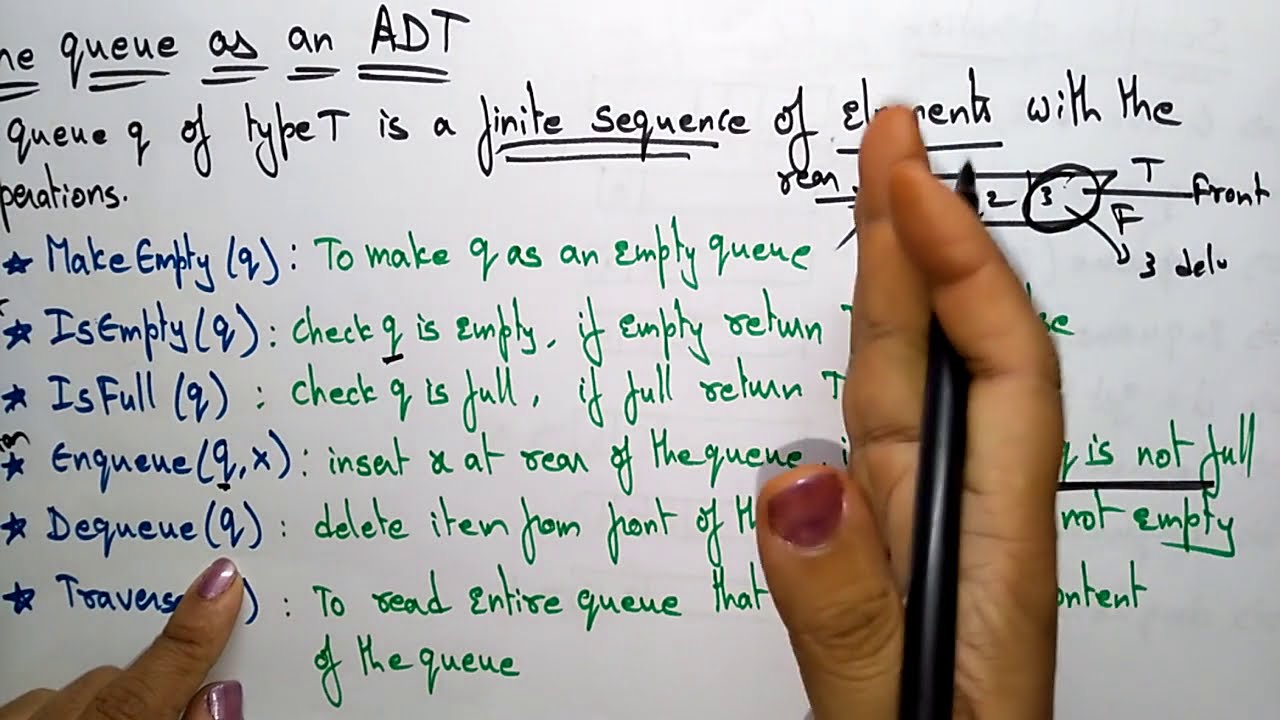 queue as an ADT
queue q of type T is a finite sequence of with the
rear 2 3 T Front
F
3
★ MakeEmpty (q) : To make q as an Empty queue
★ IsEmpty (q) : check q is Empty, if empty return
★ IsFull (q) : check q is full, if full return T
★ Enqueue (q, x) : insert x at rear of the queue, q is not full
★ Dequeue (q) : delete item from front of not empty
★ : To read Entire queue that
of the queue